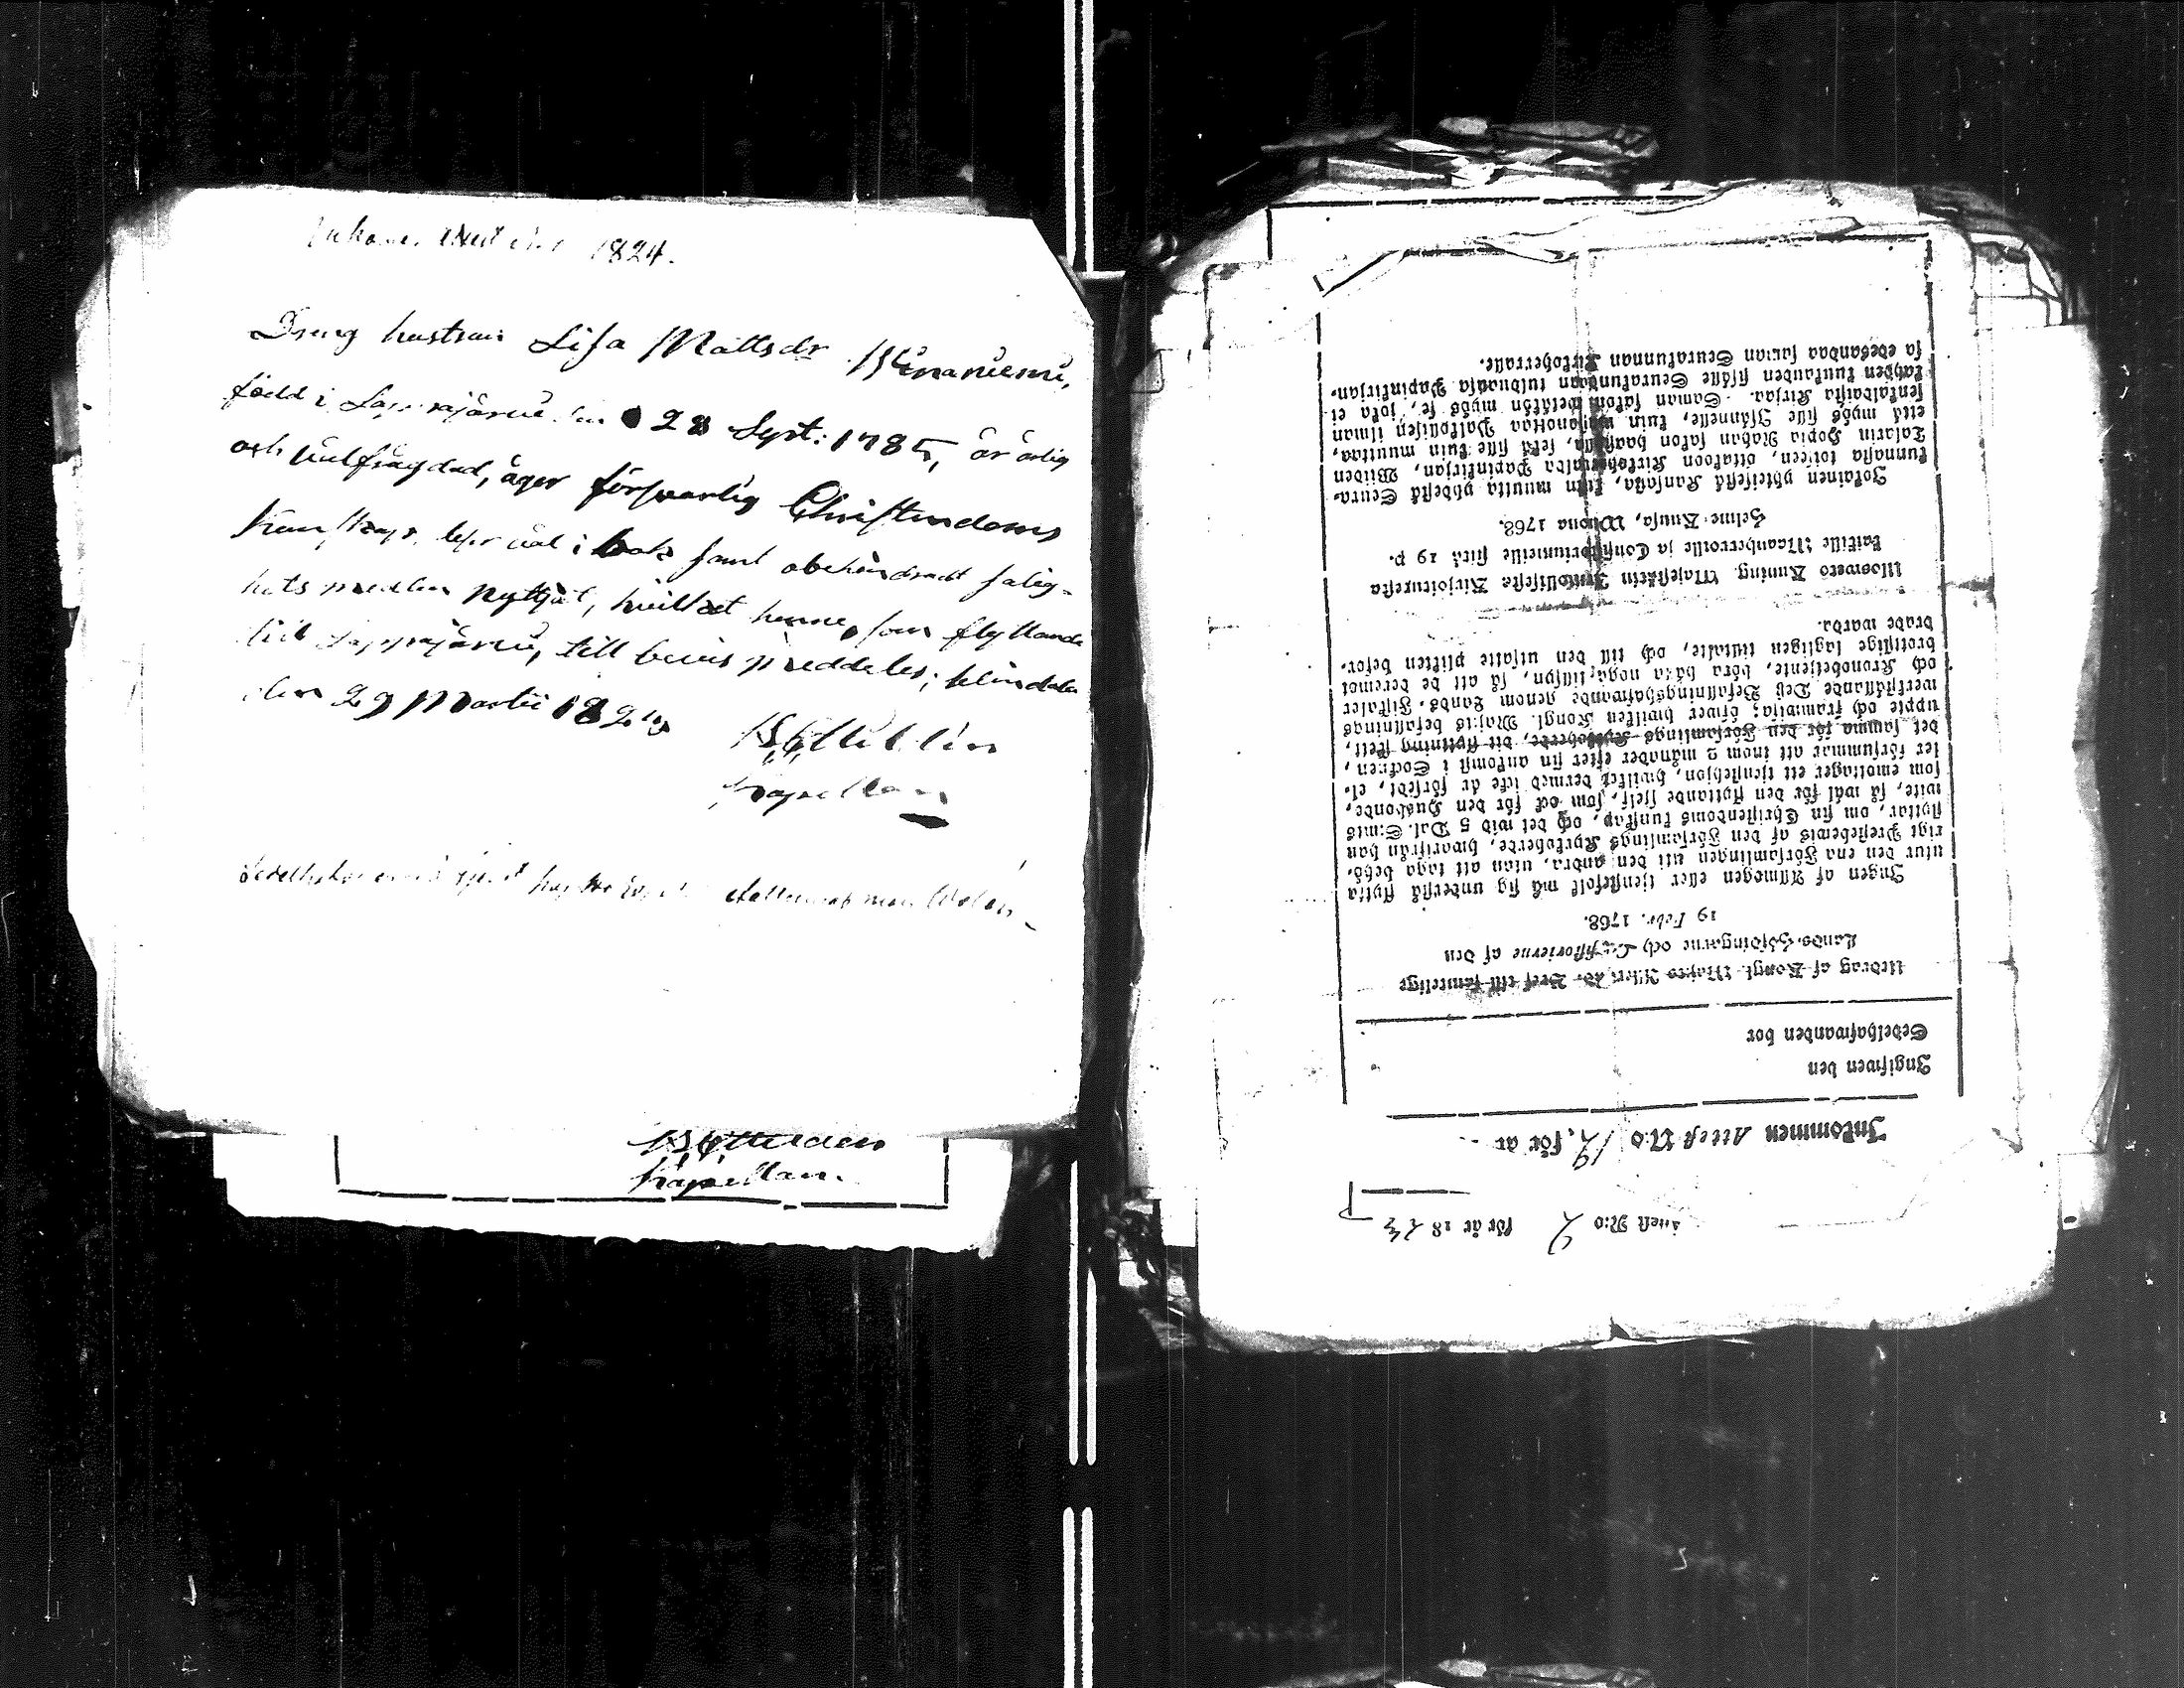 1824.
Dräng hustrun Lisa Mattsdr Kinaniemi,
född i Lappajärvi den 28 Sept: 1785, är ärlig
och välfrägdad, äger försvarlig Christendoms
kunskap, läser väl i bok samt obehindradt salig-
hets medlen nyttjat, hvilket henne, som flyttande
till Lappajärvi, till bevis meddelas;
den 29 Martii 1824
Kapellan
Kapellan.
Attest N:o 2 för år 1823
Inkommen Attest N:o 12, för år
Ingifwen den
Sedelhafwanden bor
Utdrag af Kongl. Majts Bref till samtelige
Lands-Höfdingarne och Consistorierne af den
19 Febr. 1768.
Ingen af Allmogen eller tjenstefolk må sig understå flytta
utur den ena Församlingen uti den andra, utan att taga behö-
rigt Prestebewis af den Församlings Kyrkoherde, hwarifrån han
flyttar, om sin Christendoms kunskap, och det wid 5 Dal. S:mts
wite, så wäl för den flyttande sjelf, som ock för den Husbonde,
som emottager ett tjenstehjon, hwilket dermed icke är försedt, el-
ler försummar att inom 2 månader efter sin ankomst i Socknen,
det samma för den Församlings Kyrkoherde, dit flyttning skett,
uppte och framwisa; öfwer hwilken Kongl. Maj:ts befallnings
werkställande Dess Befallningshafwande genom Lands-Fiskaler
och Kronobetjente, böra hafwa noga tillsyn, så att de deremot
brottslige lagligen tilltalte, och till den utsatte plikten beför-
drade warda.
Uloswetto Kuning. Majestätin Armollisesta Kirjoituxesta
kaikille Maanherroille ja Consistoriumeille siitä 19 p.
Helme-Kuusa, Wuona 1768.
Jokainen yhteisestä Kansasta, kuin muutta yhdestä Seura-
kunnasta toiseen, ottakoon Kirkkoherralda Papinkirjan, Wiiden
Talarin Hopia Rahan sakon haastolla, sekä sille kuin muuttaa,
että myös sille Isännelle, kuin wastaanottaa Palkollisen ilman
senkaldaista Kirjaa. Saman sakon wetäköön myös se, joka ei
kahden kuukauden sisälle Seurakundaan tulduansa Papinkirjan-
sa edesandaa saman Seurakunnan Kirkkoherralle.